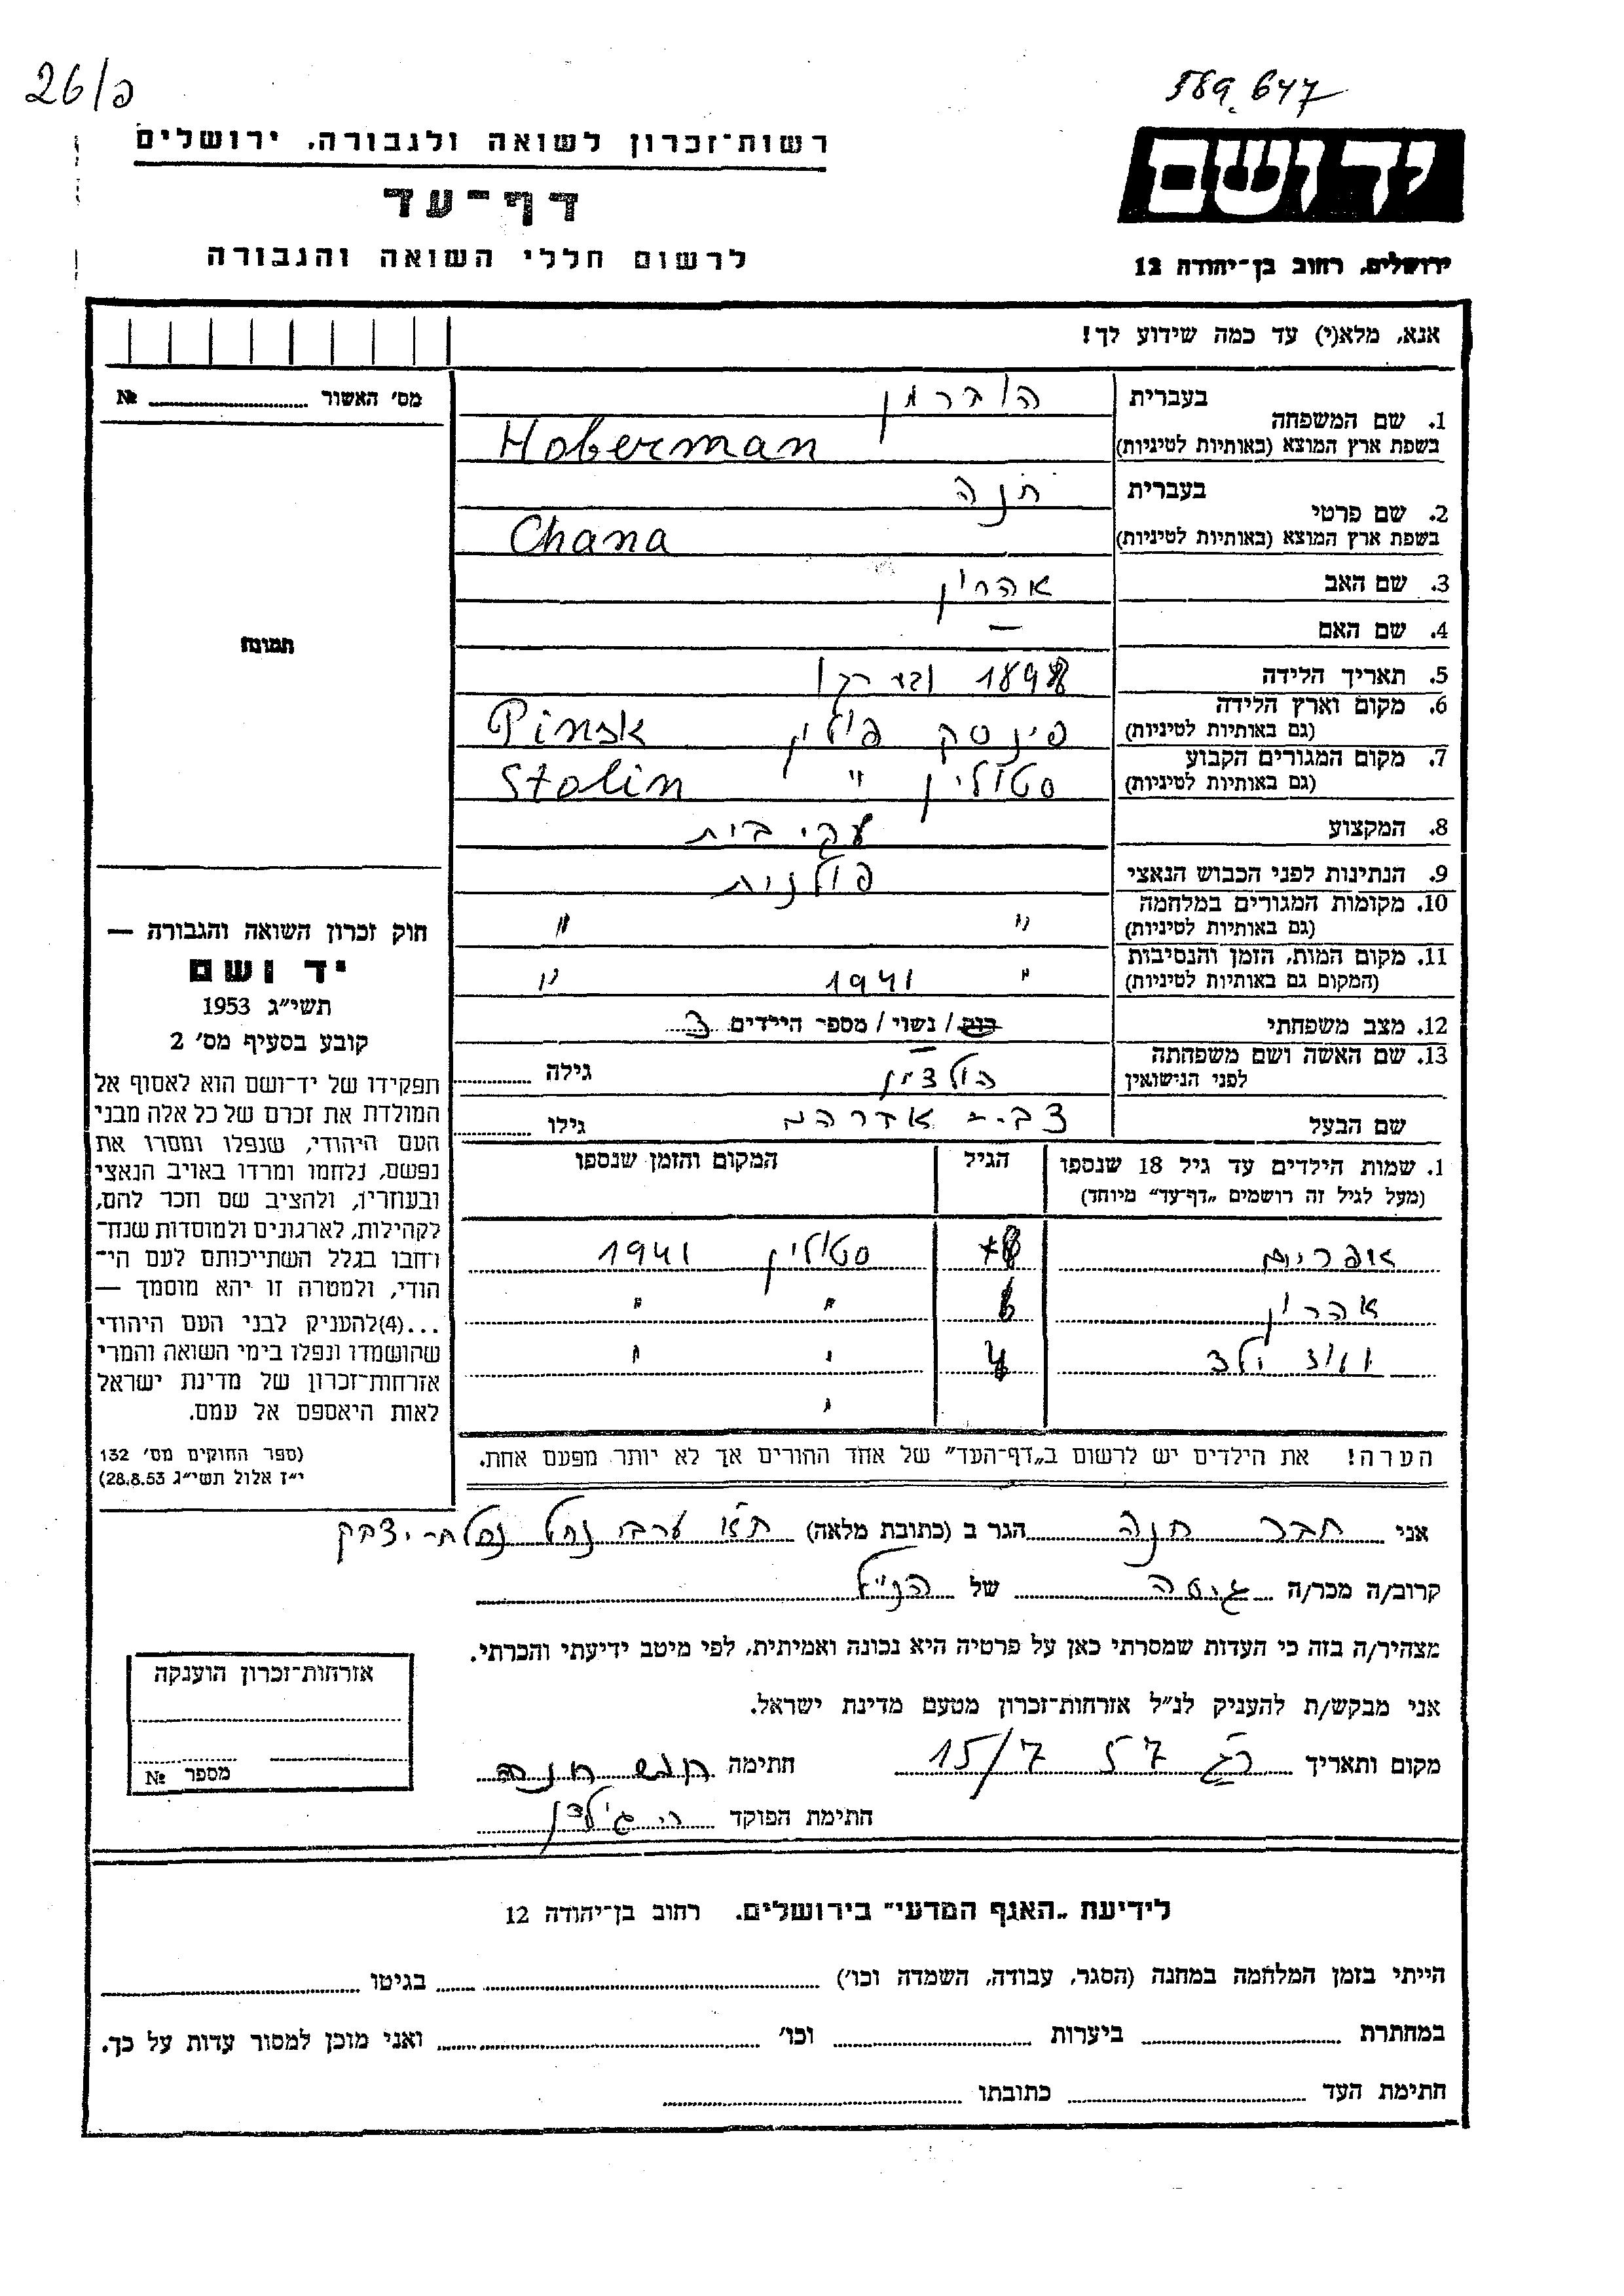 26/פ
589.647
רשות־זכרון לשואה ולגבורה, ירושלים
דף־עד
לרשום חללי השואה והגבורה
יד ושם
ירושלים, רחוב בן־יהודה 12
אנא, מלא(י) עד כמה שידוע לך!
מס׳ האשור № 
1. שם המשפחה
בעברית הוברמן
בשפת ארץ המוצא (באותיות לטיניות) Hoberman
2. שם פרטי
בעברית חנה
בשפת ארץ המוצא (באותיות לטיניות) Chana
3. שם האב אהרון
4. שם האם —
5. תאריך הלידה 1898
6. מקום וארץ הלידה (גם באותיות לטיניות) פינסק פולין Pinsk
7. מקום המגורים הקבוע (גם באותיות לטיניות) סטולין " Stolin
8. המקצוע עק׳ בית
9. הנתינות לפני הכבוש הנאצי פולנית
10. מקומות המגורים במלחמה (גם באותיות לטיניות) " "
11. מקום המות, הזמן והנסיבות (המקום גם באותיות לטיניות) " 1941 "
12. מצב משפחתי רוק / נשוי / מספר הילדים 3
13. שם האשה ושם משפחתה לפני הנישואין הולצמן גילה
שם הבעל אברהם גילו
1. שמות הילדים עד גיל 18 שנספו (מעל לגיל זה רושמים „דף־עד״ מיוחד) הגיל המקום והזמן שנספו
אפרים 8 סטולין 1941
אהרון 6 " "
ועוד ילד 4 " "
"
הערה! את הילדים יש לרשום ב„דף־העד״ של אחד ההורים אך לא יותר מפעם אחת.
תמונה
חוק זכרון השואה והגבורה —
יד ושם
תשי״ג 1953
קובע בסעיף מס׳ 2
תפקידו של יד־ושם הוא לאסוף אל
המולדת את זכרם של כל אלה מבני
העם היהודי, שנפלו ומסרו את
נפשם, נלחמו ומרדו באויב הנאצי
ובעוזריו, ולהציב שם וזכר להם,
לקהילות, לארגונים ולמוסדות שנח־
רחבו בגלל השתייכותם לעם הי־
הודי, ולמטרה זו יהא מוסמך —
...(4)להעניק לבני העם היהודי
שהושמדו ונפלו בימי השואה והמרי
אזרחות־זכרון של מדינת ישראל
לאות היאספם אל עמם.
(ספר החוקים מס׳ 132
י״ז אלול תשי״ג 28.8.53)
אני חבר חנה הגר ב (כתובת מלאה) ת״א ערבי נחל נחלת־יצחק
קרוב/ה מכר/ה גיסה של הנ״ל
מצהיר/ה בזה כי העדות שמסרתי כאן על פרטיה היא נכונה ואמיתית, לפי מיטב ידיעתי והכרתי.
אני מבקש/ת להעניק לנ״ל אזרחות־זכרון מטעם מדינת ישראל.
מקום ותאריך ר״ג 57 15/7 חתימה חנה
חתימת הפוקד
אזרחות־זכרון הוענקה
מספר №
לידיעת „האגף המדעי״ בירושלים. רחוב בן־יהודה 12
הייתי בזמן המלחמה במחנה (הסגר, עבודה, השמדה וכו׳) בגיטו
במחתרת ביערות וכו׳ ואני מוכן למסור עדות על כך.
חתימת העד כתובתו